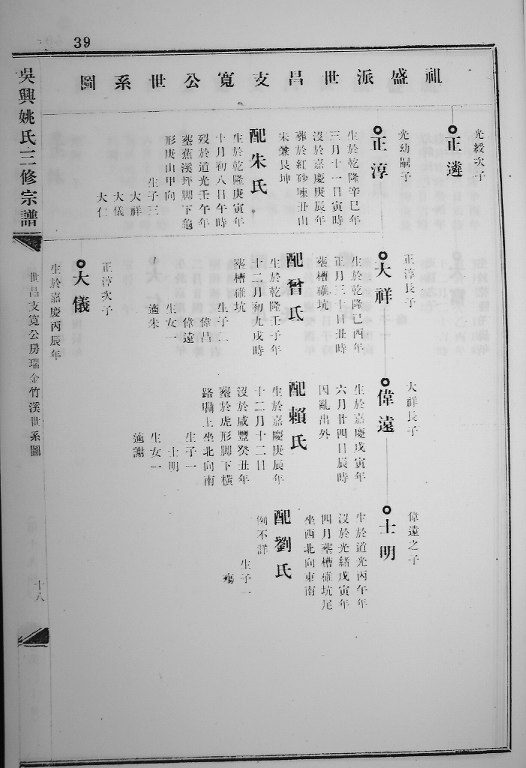 39
祖盛派世昌支寬公世系圖
光綬次子
正遴
光幼嗣子
正淳
生於乾隆辛巳年
三月十一日寅時
沒於嘉慶庚辰年
葬於紅砂
未兼艮坤
配朱氏
生於乾隆庚寅年
十月初八日午時
歿於道光壬午年
葬蕉溪坪腳下龜
形庚山甲向
生子三
大祥
大儀
大仁
正淳長子
大祥
生於乾隆己酉年
正月三十日丑時
葬槽碓坑
配曾氏
生於乾隆壬子年
十二月初九戌時
葬槽碓坑
生子二
偉昌
偉遠
生女一
適朱
正淳次子
大儀
生於嘉慶丙辰年
大祥長子
偉遠
生於嘉慶戊寅年
六月廿四日辰時
因亂出外
配賴氏
生於嘉慶庚辰年
十二月十二日
沒於咸豐癸丑年
葬於虎形腳下橫
路磡上坐北向南
生子一
士明
生女一
適謝
偉遠之子
士明
生於道光丙午年
沒於光緒戊寅年
四月葬槽碓坑尾
坐西北向東南
配劉氏
例不詳
生子一
殤
吳興姚氏三修宗譜
世昌支寬公房瑞金竹溪世系圖
十八